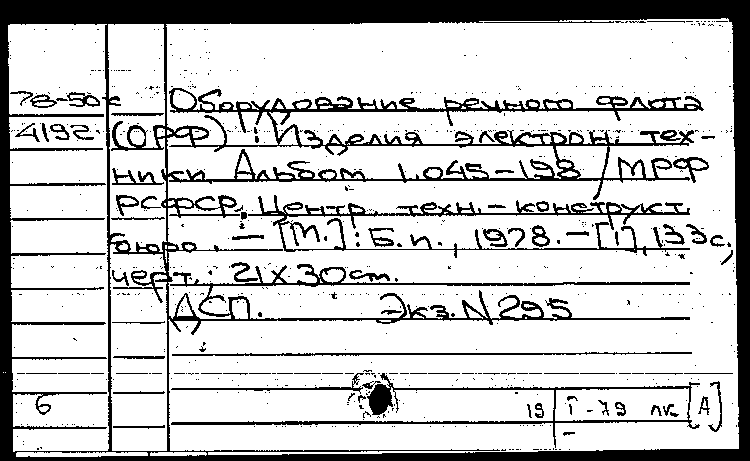 78-50к Оборудование речного флота
4192 (ОРФ) : Изделия электрон. тех-
ники. Альбом 1.045-198 / МРФ
РСФСР, Центр. техн.-конструкт.
бюро. — [М.] : Б.и., 1978. — [1], 133 с.,
черт.; 21 X 30 cm.
ДСП. Экз. N 295
6 19 I-79 лк [А]